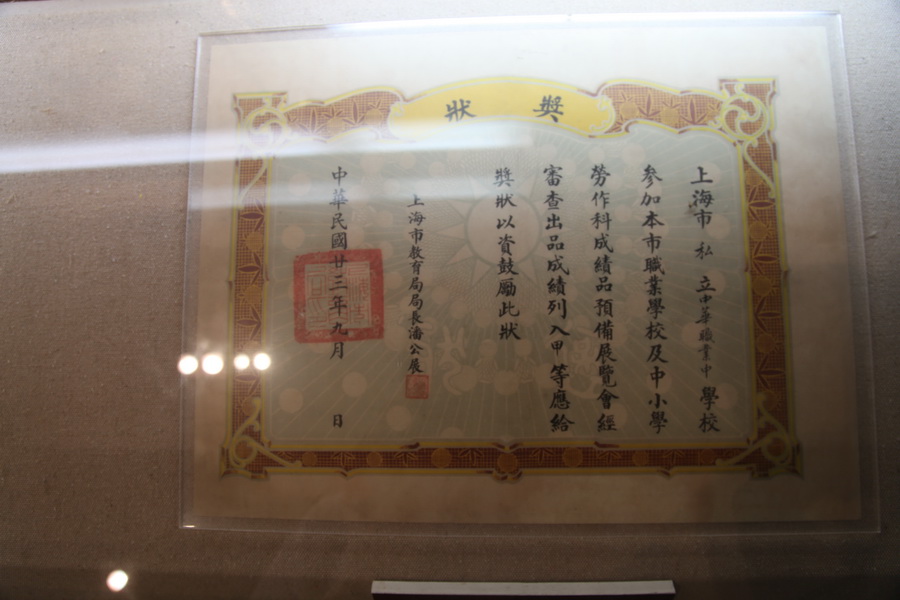 獎狀
上海市私立中華職業中學校
參加本市職業學校及中小學
勞作科成績品預備展覽會經
審查出品成績列入甲等應給
獎狀以資鼓勵此狀
上海市教育局局長潘公展
中華民國廿三年九月 日